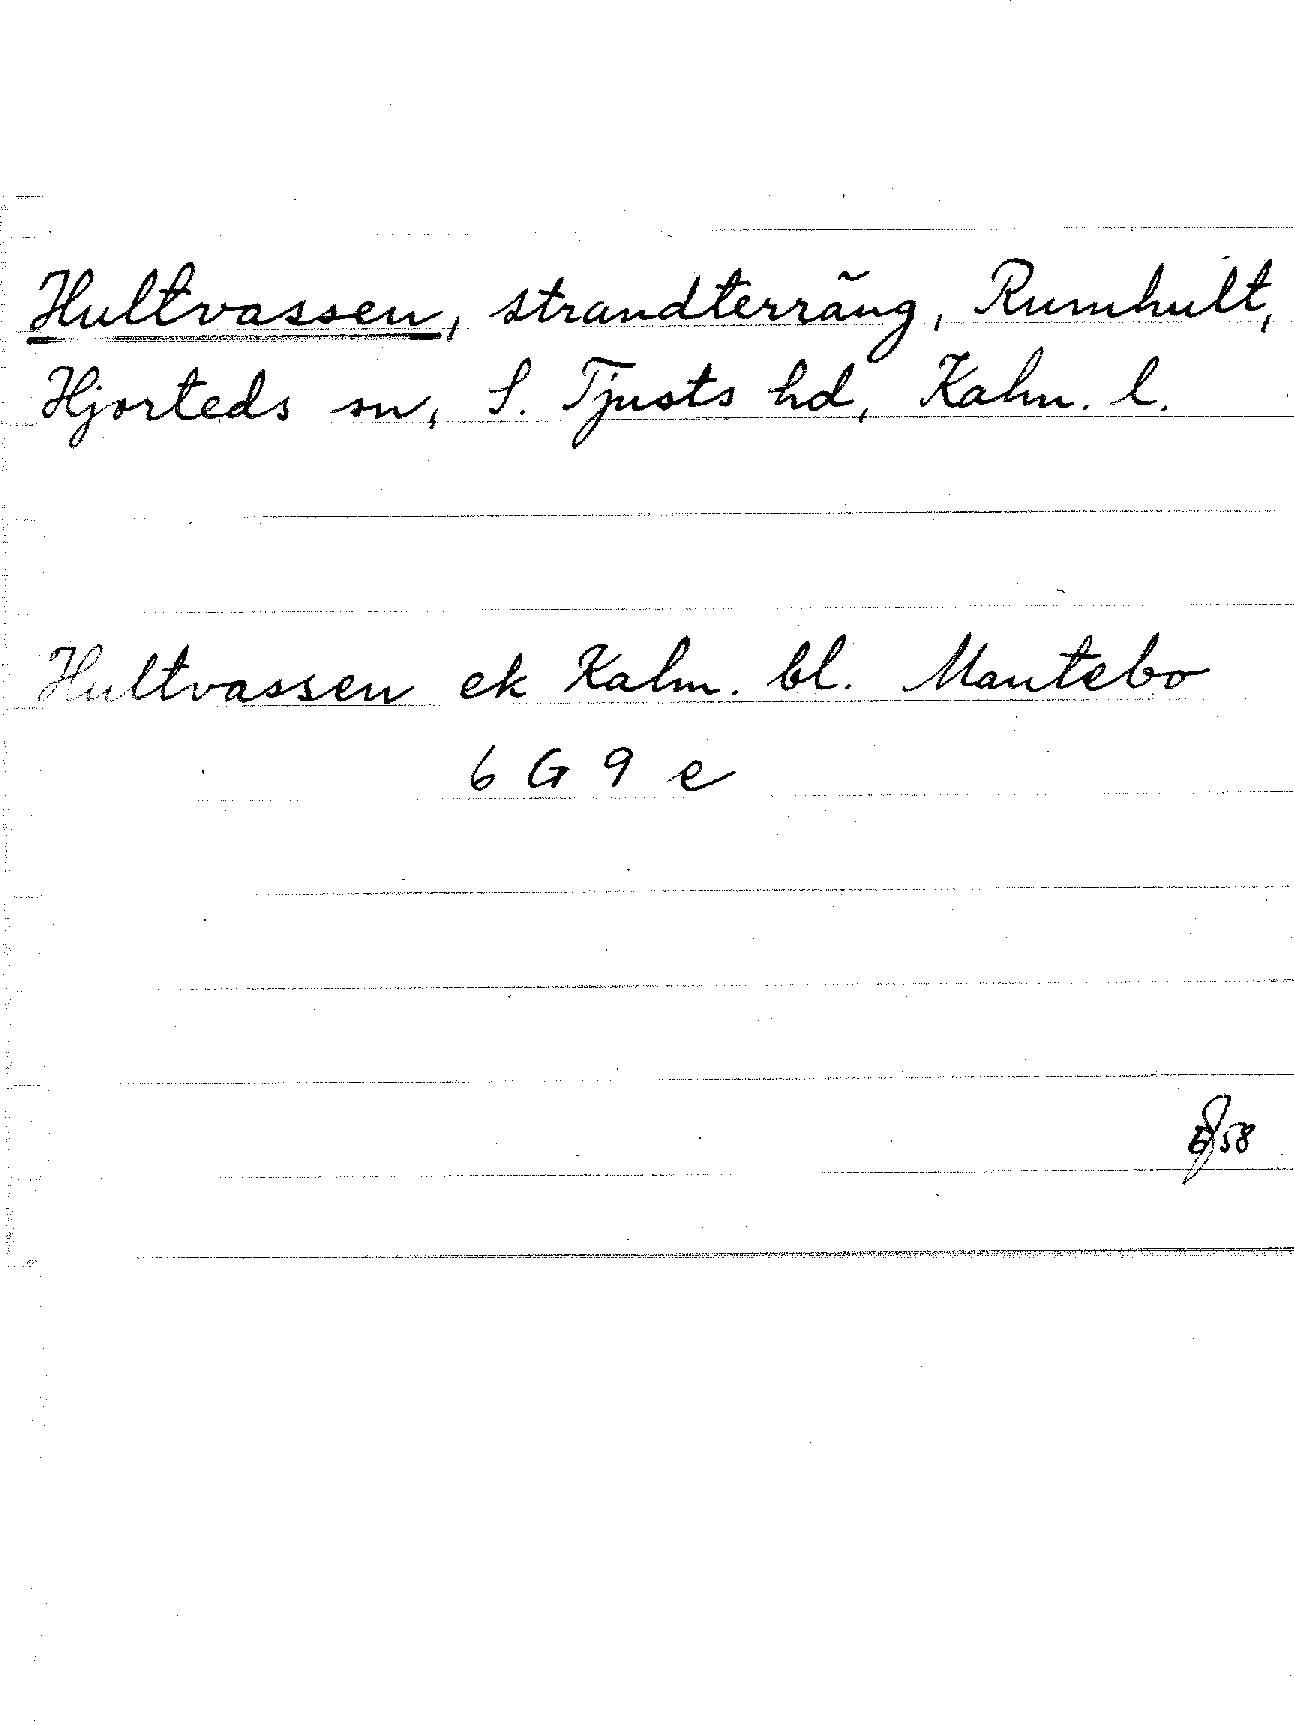 Hultvassen, strandterräng, Rumhult,
Hjorteds sn, S. Tjusts hd, Kalm. l.
Hultvassen ek Kalm. bl. Mantebo
6 G 9 e
58